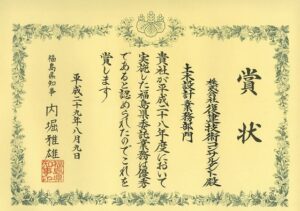 賞状
株式会社復建技術コンサルタント殿
土木設計業務部門
貴社が平成二十八年度において
実施した福島県委託業務は優秀
であると認められたのでこれを
賞します
平成二十九年八月九日
福島県知事 内堀雅雄